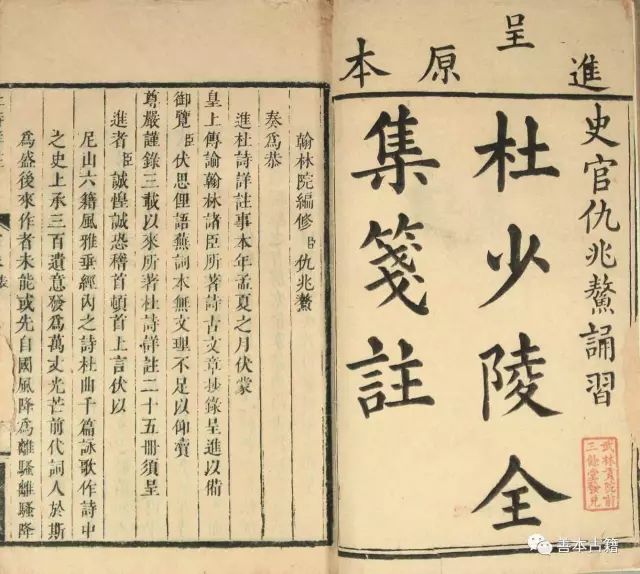 進呈原本
史官仇兆鰲誦習
武林貢院前
三餘堂發兌
杜少陵全
集箋註
翰林院編修臣仇兆鰲
奏爲恭
進杜詩詳註事本年孟夏之月伏蒙
皇上傳諭翰林諸臣所著詩古文章抄錄呈進以備
御覽臣伏思俚語蕪詞本無文理不足以仰瀆
尊嚴謹錄三載以來所著杜詩詳註二十五冊須呈
進者臣誠惶誠恐稽首頓首上言伏以
尼山六籍風雅垂經內之詩杜曲千篇詠歌作詩中
之史上承三百遺意發爲萬丈光芒前代詞人於斯
爲盛後來作者未能或先自國風降爲離騷離騷降
善本古籍